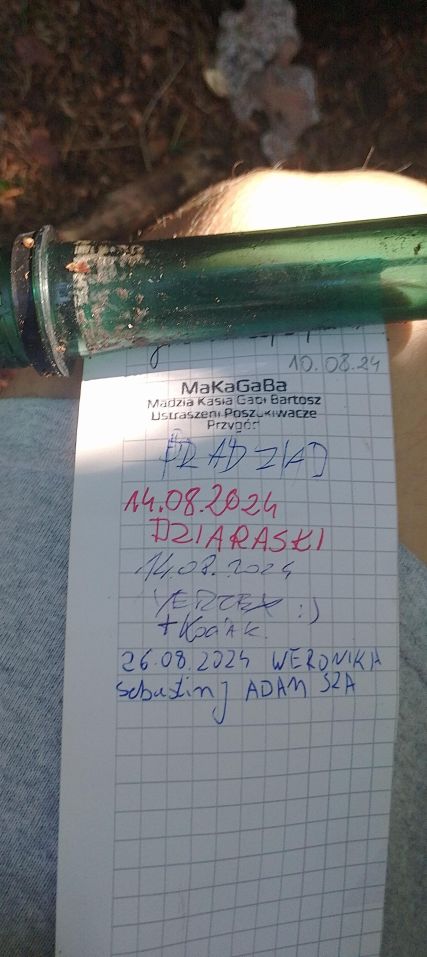 10.08.24
MaKaGaBa
Madzia Kasia Gabi Bartosz
Ustraszeni Poszukiwacze
Przygód
PRADZIAD
14.08.2024
DZIARASKI
14.08.2024
:)
+ Kociak
26.08.2024 WERONIKA
Sebastian j ADAM SZA